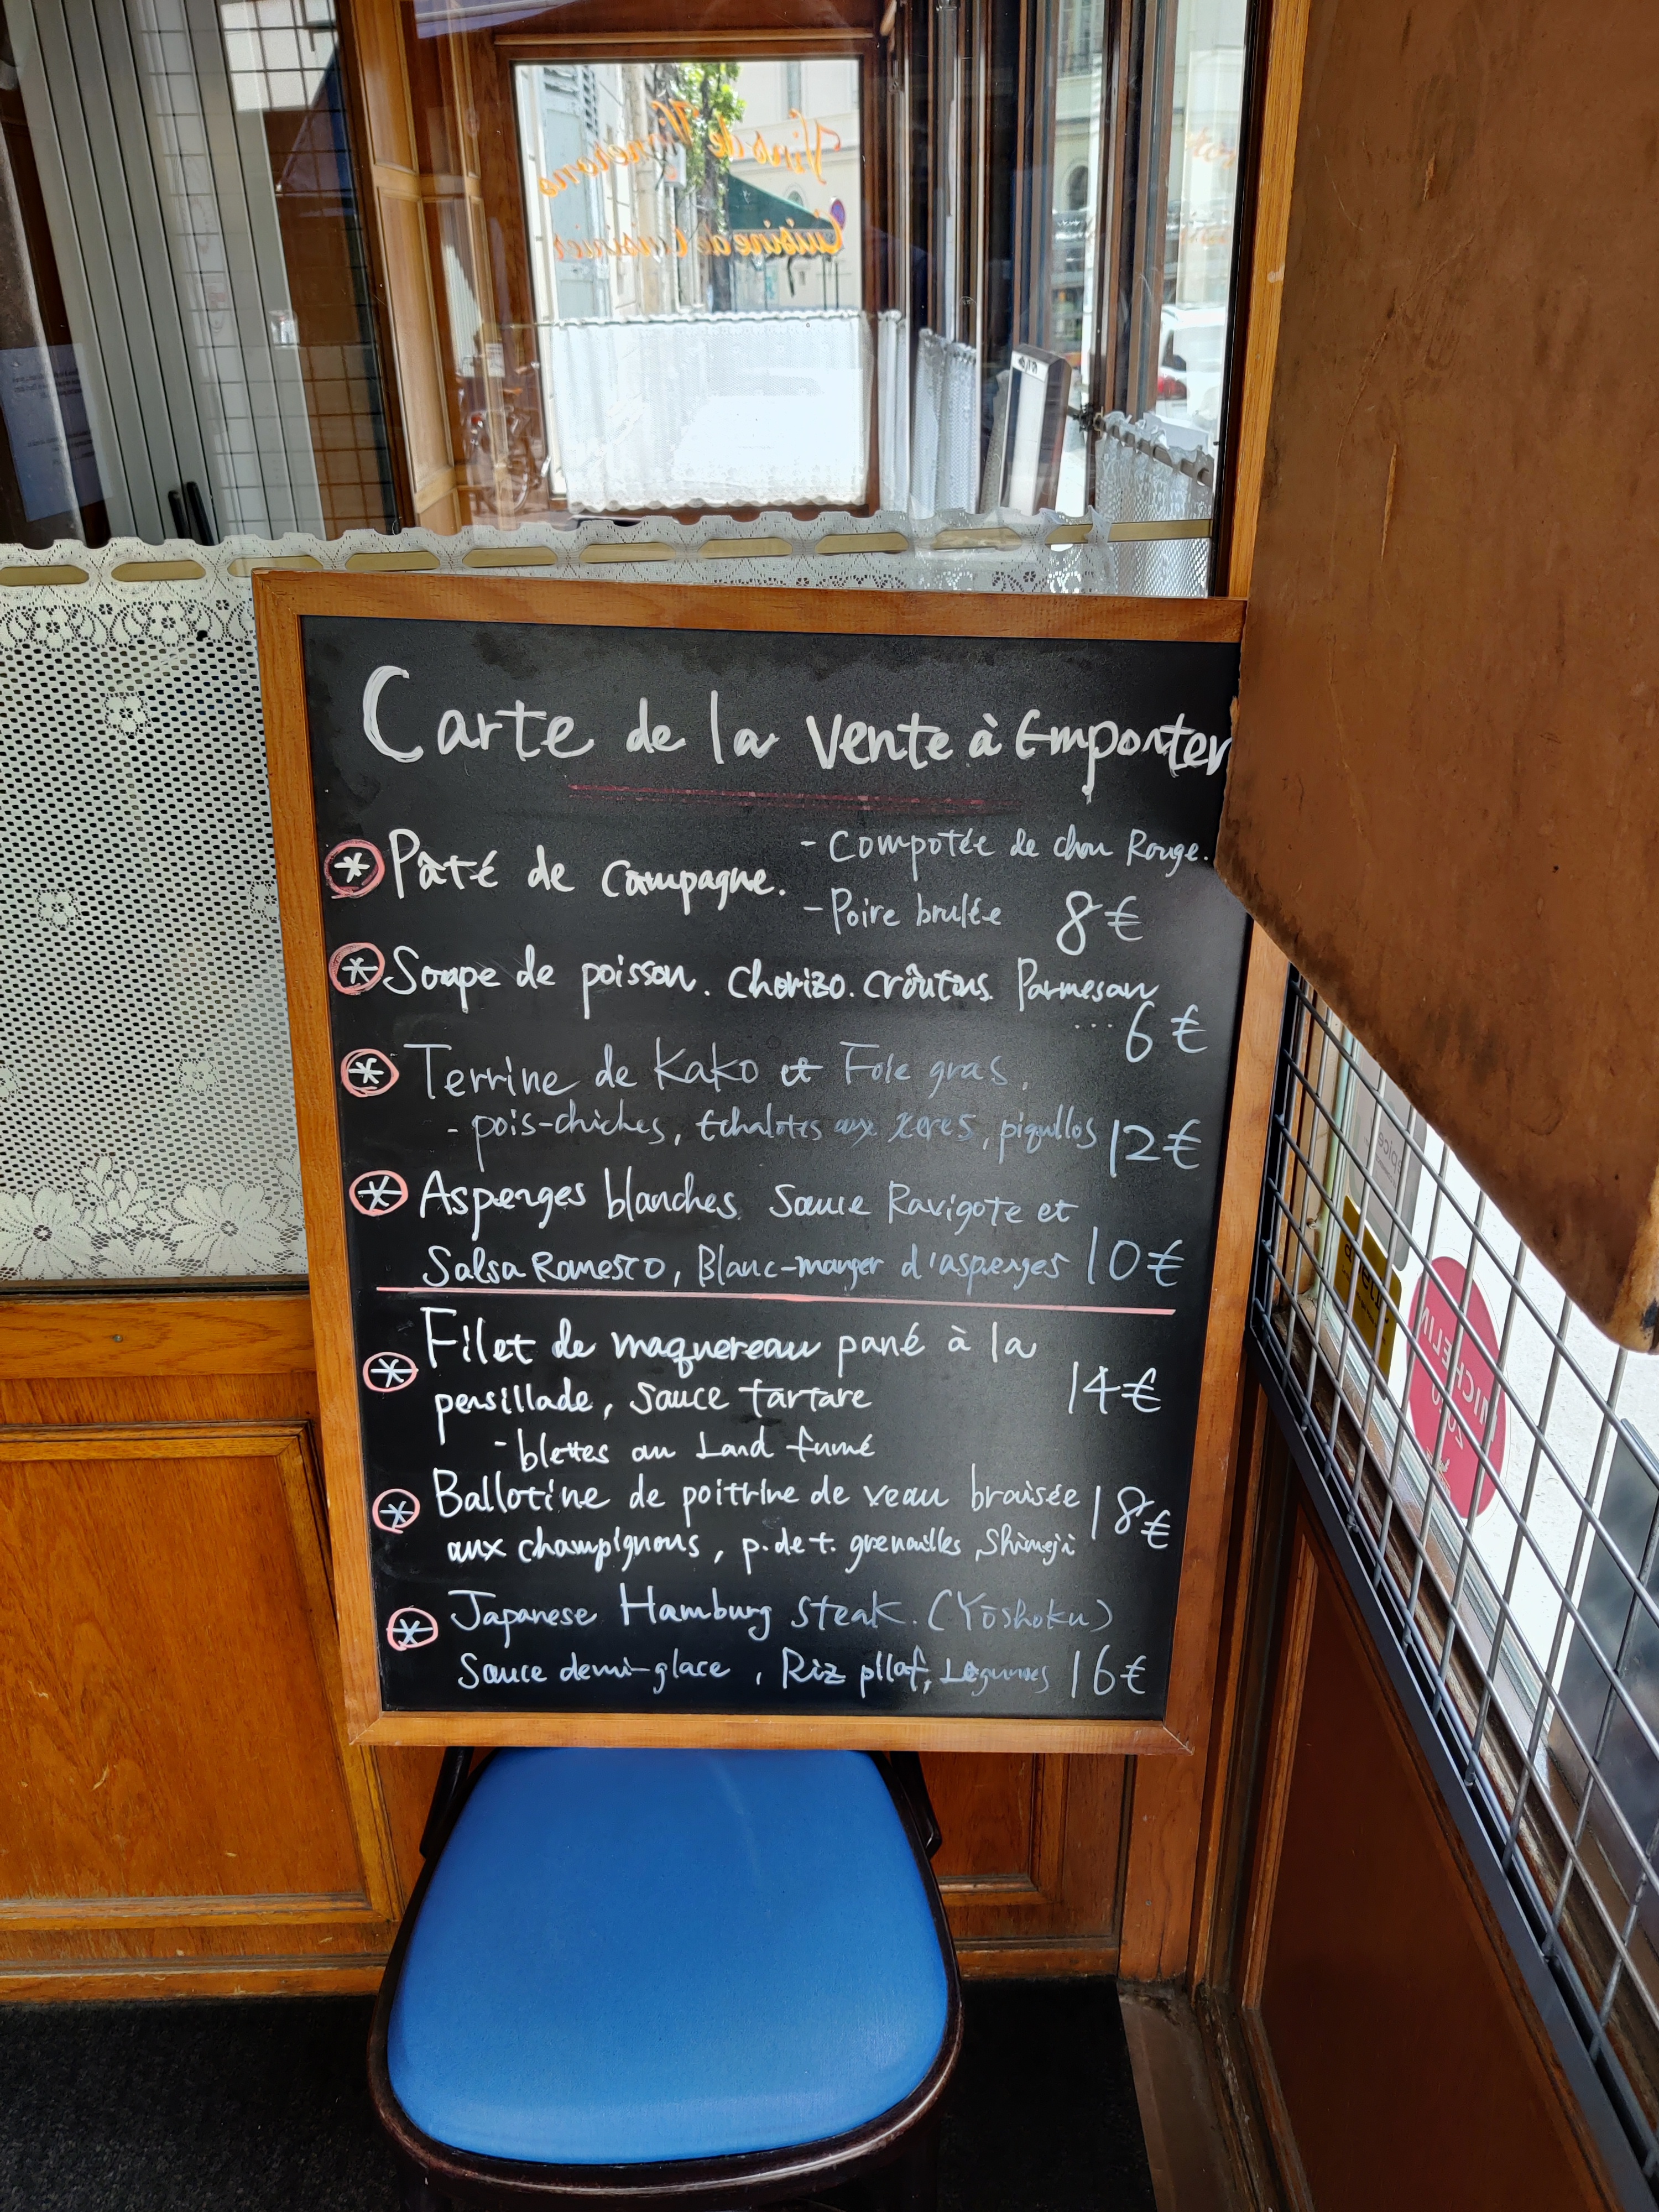 Vins de Vignerons
Cuisine de Cuisinier
Carte de la vente à Emporter
Pâté de Campagne. - Compotée de chou Rouge.
- Poire brulée 8€
Soupe de poisson. Chorizo. Croûtons. Parmesan
... 6€
Terrine de Kako et Foie gras.
- pois-chiches, Echalotes aux xeres, piquillos 12€
Asperges blanches Sauce Ravigote et
Salsa Romesco, Blanc-manger d'asperges 10€
Filet de maquereau pané à la
persillade, sauce tartare 14€
- blettes au Lard fumé
Ballotine de poitrine de veau braisée 18€
aux champignons, p.de t. grenailles, Shimeji
Japanese Hamburg Steak. (Yōshoku)
Sauce demi-glace, Riz pilaf, Legumes 16€
MICHELIN